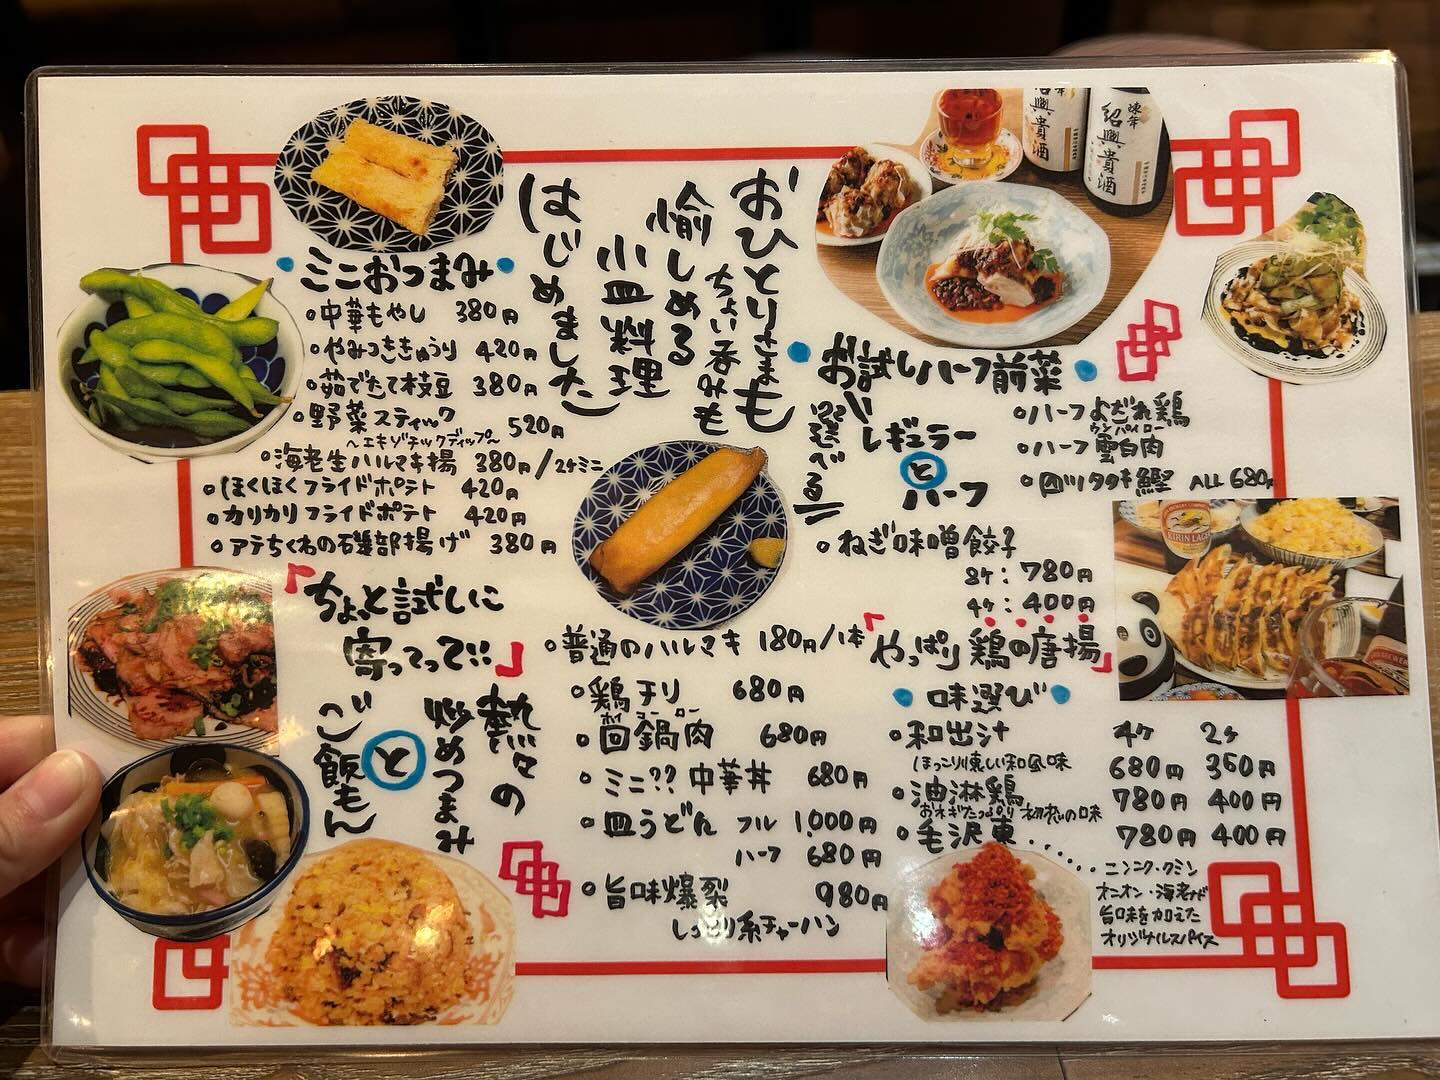 おひとりさまも
ちょい呑みも
愉しめる
小皿料理
はじめました
ミニおつまみ
中華もやし 380円
やみつききゅうり 420円
茹でたて枝豆 380円
野菜スティック 520円
〜エキゾチックディップ〜
海老生ハルマキ揚 380円/2ケミニ
ほくほくフライドポテト 420円
カリカリフライドポテト 420円
アテちくわの磯部揚げ 380円
「ちょっと試しに
寄ってって!!」
熱々の
炒めつまみ
と
ご飯もん
普通のハルマキ 180円/1本
鶏チリ 680円
ホイコーロー
回鍋肉 680円
ミニ??中華丼 680円
皿うどん フル 1,000円
ハーフ 680円
旨味爆裂 980円
しっとり系チャーハン
陳年
紹興貴酒
紹興貴酒
お試しハーフ前菜
ハーフよだれ鶏
ウンパイロー
ハーフ雲白肉
四ツタタキ鰹 ALL 680円
選べる!!
レギュラー
と
ハーフ
ねぎ味噌餃子
8ケ:780円
4ケ:400円
KIRIN LAGER
「やっぱり鶏の唐揚」
味選び
4ケ 2ケ
和出汁 680円 350円
ほっこり懐しい和風味
油淋鶏 780円 400円
おネギたっぷり初恋の味
毛沢東 780円 400円
ニンニク・クミン
オニオン・海老が
旨味を加えた
オリジナルスパイス